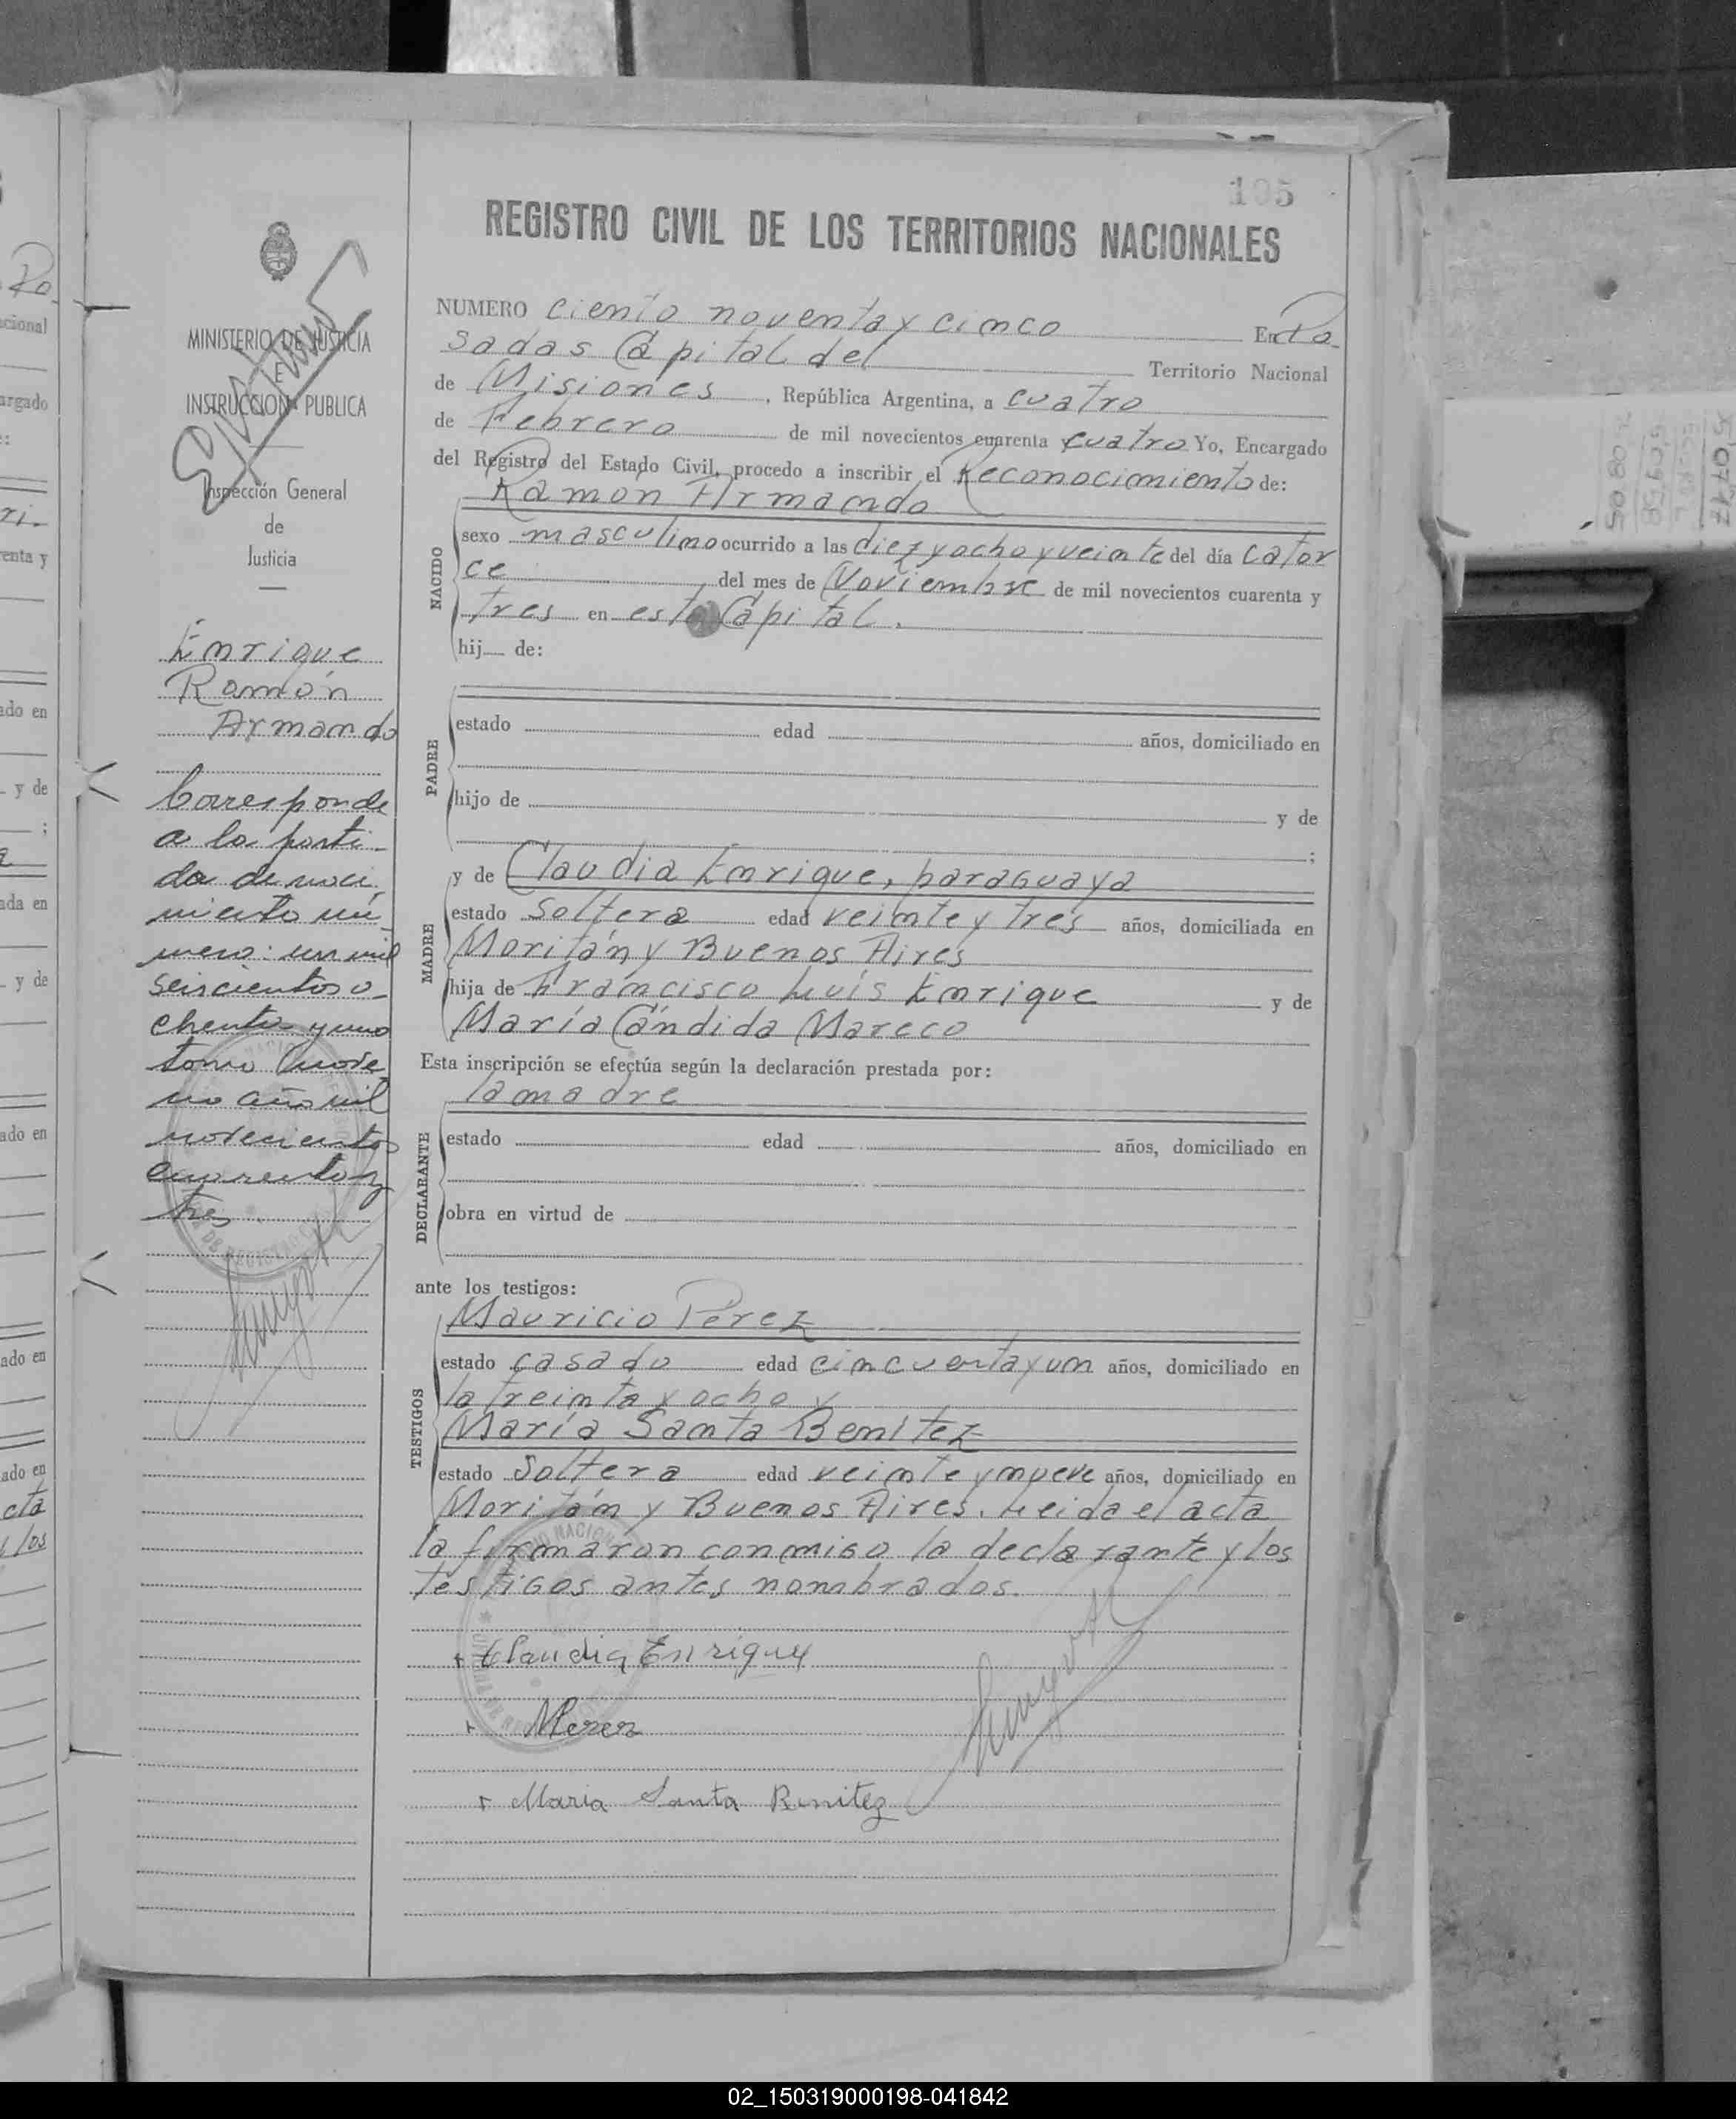 195
REGISTRO CIVIL DE LOS TERRITORIOS NACIONALES
NUMERO ciento noventa y cinco En Po
sadas Capital del Territorio Nacional
de Misiones, República Argentina, a cuatro
de Febrero de mil novecientos cuarenta y cuatro Yo, Encargado
del Registro del Estado Civil, procedo a inscribir el Reconocimiento de:
Ramón Armando
NACIDO
sexo masculino ocurrido a las diez y ocho y veinte del día cator
ce del mes de Noviembre de mil novecientos cuarenta y
tres en esta Capital.
hij de:
PADRE
estado edad años, domiciliado en
hijo de y de
;
y de Claudia Enrique, paraguaya
MADRE
estado soltera edad veinte y tres años, domiciliada en
Moritán y Buenos Aires
hija de Francisco Luis Enrique y de
María Cándida Mareco
Esta inscripción se efectúa según la declaración prestada por:
la madre
DECLARANTE
estado edad años, domiciliado en
obra en virtud de
ante los testigos:
Mauricio Pérez
TESTIGOS
estado casado edad cincuenta y un años, domiciliado en
la treinta y ocho y
María Santa Benitez
estado soltera edad veinte y nueve años, domiciliado en
Moritán y Buenos Aires. Leida el acta
la firmaron conmigo la declarante y los
testigos antes nombrados.
Claudia Enrique
MPerez
Maria Santa Benitez
MINISTERIO DE JUSTICIA
E
INSTRUCCION PUBLICA
Inspección General
de
Justicia
Enrique
Ramón
Armando
Corresponde
a la parti-
da de naci
miento nú-
mero: un mil
seiscientos o-
chenta y uno
tomo nove
no año mil
novecientos
cuarenta y
tres
02_150319000198-041842